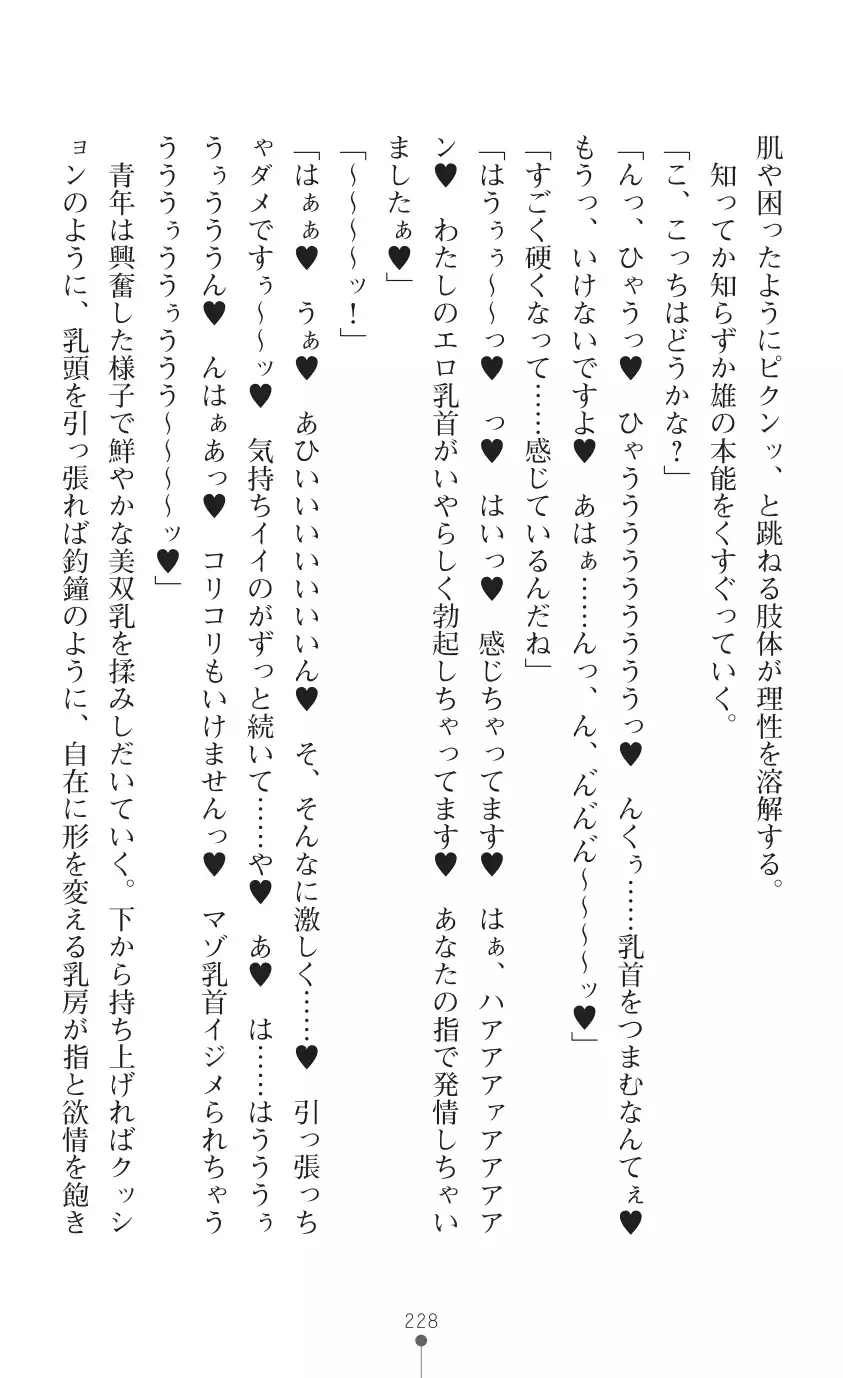 肌や困ったようにピクンッ、と跳ねる肢体が理性を溶解する。
　知ってか知らずか雄の本能をくすぐっていく。
「こ、こっちはどうかな？」
「んっ、ひゃうっ♥　ひゃうううううううううっ♥　んくぅ……乳首をつまむなんてぇ♥
もうっ、いけないですよ♥　あはぁ……んっ、ん、ん゛ん゛ん゛～～～～ッ♥」
「すごく硬くなって……感じているんだね」
「はうぅぅ～～っ♥　っ♥　はいっ♥　感じちゃってます♥　はぁ、ハアアアァアアアア
ン♥　わたしのエロ乳首がいやらしく勃起しちゃってます♥　あなたの指で発情しちゃい
ましたぁ♥」
「～～～～ッ！」
「はぁぁ♥　うぁ♥　あひいいいいいいいん♥　そ、そんなに激しく……♥　引っ張っち
ゃダメですぅ～～ッ♥　気持ちイイのがずっと続いて……や♥　あ♥　は……はうううぅ
うぅううん♥　んはぁあっ♥　コリコリもいけませんっ♥　マゾ乳首イジメられちゃう
うううぅううぅううう～～～～ッ♥」
　青年は興奮した様子で鮮やかな美双乳を揉みしだいていく。下から持ち上げればクッシ
ョンのように、乳頭を引っ張れば釣鐘のように、自在に形を変える乳房が指と欲情を飽き
228